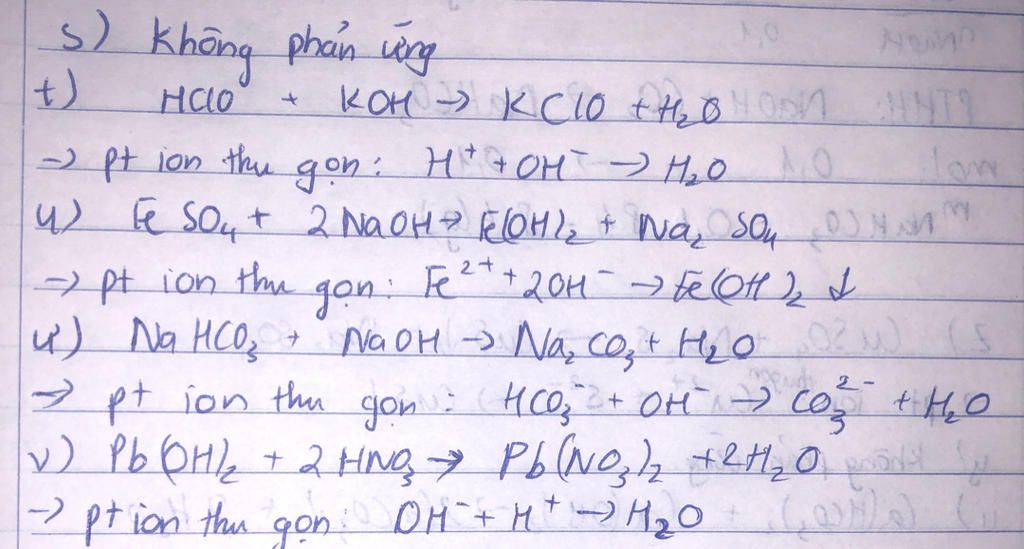 s) Không phản ứng
t) HClO + KOH → KClO + H₂O
→ pt ion thu gọn: H⁺ + OH⁻ → H₂O
u) FeSO₄ + 2NaOH → Fe(OH)₂ + Na₂SO₄
→ pt ion thu gọn: Fe²⁺ + 2OH⁻ → Fe(OH)₂ ↓
ư) NaHCO₃ + NaOH → Na₂CO₃ + H₂O
→ pt ion thu gọn: HCO₃⁻ + OH⁻ → CO₃²⁻ + H₂O
v) Pb(OH)₂ + 2HNO₃ → Pb(NO₃)₂ + 2H₂O
→ pt ion thu gọn: OH⁻ + H⁺ → H₂O